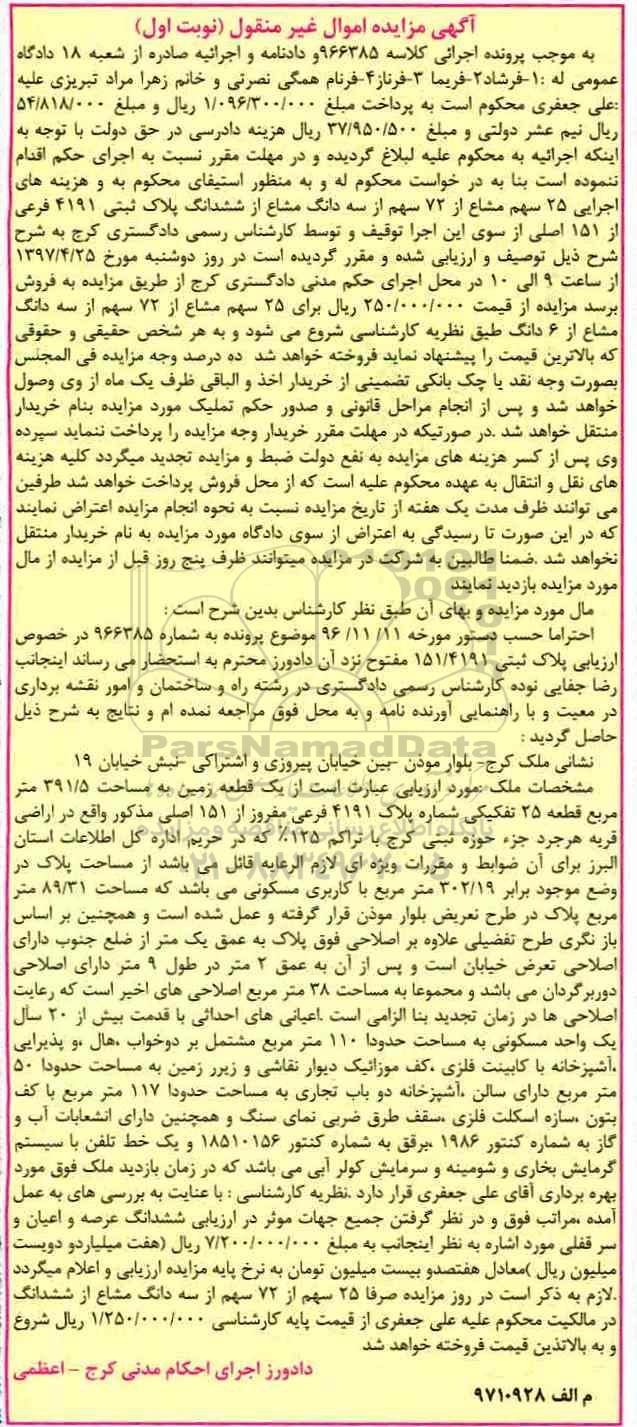 آگهی مزایده اموال غیر منقول (نوبت اول)
به موجب پرونده اجرائی کلاسه ۹۶۶۳۸۵و دادنامه و اجرائیه صادره از شعبه ۱۸ دادگاه
عمومی له :۱-فرشاد۲-فریما ۳-فرناز۴-فرنام همگی نصرتی و خانم زهرا مراد تبریزی علیه
:علی جعفری محکوم است به پرداخت مبلغ ۱/۰۹۶/۳۰۰/۰۰۰ ریال و مبلغ ۵۴/۸۱۸/۰۰۰
ریال نیم عشر دولتی و مبلغ ۳۷/۹۵۰/۵۰۰ ریال هزینه دادرسی در حق دولت با توجه به
اینکه اجرائیه به محکوم علیه لبلاغ گردیده و در مهلت مقرر نسبت به اجرای حکم اقدام
ننموده است بنا به در خواست محکوم له و به منظور استیفای محکوم به و هزینه های
اجرایی ۲۵ سهم مشاع از ۷۲ سهم از سه دانگ مشاع از ششدانگ پلاک ثبتی ۴۱۹۱ فرعی
از ۱۵۱ اصلی از سوی این اجرا توقیف و توسط کارشناس رسمی دادگستری کرج به شرح
شرح ذیل توصیف و ارزیابی شده و مقرر گردیده است در روز دوشنبه مورخ ۱۳۹۷/۴/۲۵
از ساعت ۹ الی ۱۰ در محل اجرای حکم مدنی دادگستری کرج از طریق مزایده به فروش
برسد مزایده از قیمت ۲۵۰/۰۰۰/۰۰۰ ریال برای ۲۵ سهم مشاع از ۷۲ سهم از سه دانگ
مشاع از ۶ دانگ طبق نظریه کارشناسی شروع می شود و به هر شخص حقیقی و حقوقی
که بالاترین قیمت را پیشنهاد نماید فروخته خواهد شد ده درصد وجه مزایده فی المجلس
بصورت وجه نقد یا چک بانکی تضمینی از خریدار اخذ و الباقی ظرف یک ماه از وی وصول
خواهد شد و پس از انجام مراحل قانونی و صدور حکم تملیک مورد مزایده بنام خریدار
منتقل خواهد شد .در صورتیکه در مهلت مقرر خریدار وجه مزایده را پرداخت ننماید سپرده
وی پس از کسر هزینه های مزایده به نفع دولت ضبط و مزایده تجدید میگردد کلیه هزینه
های نقل و انتقال به عهده محکوم علیه است که از محل فروش پرداخت خواهد شد طرفین
می توانند ظرف مدت یک هفته از تاریخ مزایده نسبت به نحوه انجام مزایده اعتراض نمایند
که در این صورت تا رسیدگی به اعتراض از سوی دادگاه مورد مزایده به نام خریدار منتقل
نخواهد شد .ضمنا طالبین به شرکت در مزایده میتوانند ظرف پنج روز قبل از مزایده از مال
مورد مزایده بازدید نمایند
مال مورد مزایده و بهای آن طبق نظر کارشناس بدین شرح است :
احتراما حسب دستور مورخه ۱۱/ ۱۱/ ۹۶ موضوع پرونده به شماره ۹۶۶۳۸۵ در خصوص
ارزیابی پلاک ثبتی ۱۵۱/۴۱۹۱ مفتوح نزد آن دادورز محترم به استحضار می رساند اینجانب
رضا جفایی نوده کارشناس رسمی دادگستری در رشته راه و ساختمان و امور نقشه برداری
در معیت و با راهنمایی آورنده نامه و به محل فوق مراجعه نمده ام و نتایج به شرح ذیل
حاصل گردید :
ParsNamadData
نشانی ملک کرج- بلوار موذن -بین خیابان پیروزی و اشتراکی -نبش خیابان ۱۹
مشخصات ملک :مورد ارزیابی عبارت است از یک قطعه زمین به مساحت ۳۹۱/۵ متر
مربع قطعه ۲۵ تفکیکی شماره پلاک ۴۱۹۱ فرعی مفروز از ۱۵۱ اصلی مذکور واقع در اراضی
قریه هرجرد جزء حوزه ثبتی کرج با تراکم ۱۲۵٪ که در حریم اداره کل اطلاعات استان
البرز برای آن ضوابط و مقررات ویژه ای لازم الرعایه قائل می باشد از مساحت پلاک در
وضع موجود برابر ۳۰۲/۱۹ متر مربع با کاربری مسکونی می باشد که مساحت ۸۹/۳۱ متر
مربع پلاک در طرح تعریض بلوار موذن قرار گرفته و عمل شده است و همچنین بر اساس
باز نگری طرح تفضیلی علاوه بر اصلاحی فوق پلاک به عمق یک متر از ضلع جنوب دارای
اصلاحی تعرض خیابان است و پس از آن به عمق ۲ متر در طول ۹ متر دارای اصلاحی
دوربرگردان می باشد و مجموعا به مساحت ۳۸ متر مربع اصلاحی های اخیر است که رعایت
اصلاحی ها در زمان تجدید بنا الزامی است .اعیانی های احداثی با قدمت بیش از ۲۰ سال
یک واحد مسکونی به مساحت حدودا ۱۱۰ متر مربع مشتمل بر دوخواب ،هال ،و پذیرایی
،آشپزخانه با کابینت فلزی ،کف موزائیک دیوار نقاشی و زیرر زمین به مساحت حدودا ۵۰
متر مربع دارای سالن ،آشپزخانه دو باب تجاری به مساحت حدودا ۱۱۷ متر مربع با کف
بتون ،سازه اسکلت فلزی ،سقف طرق ضربی نمای سنگ و همچنین دارای انشعابات آب و
گاز به شماره کنتور ۱۹۸۶ ،برقق به شماره کنتور ۱۸۵۱۰۱۵۶ و یک خط تلفن با سیستم
گرمایش بخاری و شومینه و سرمایش کولر آبی می باشد که در زمان بازدید ملک فوق مورد
بهره برداری آقای علی جعفری قرار دارد .نظریه کارشناسی : با عنایت به بررسی های به عمل
آمده ،مراتب فوق و در نظر گرفتن جمیع جهات موثر در ارزیابی ششدانگ عرصه و اعیان و
سر قفلی مورد اشاره به نظر اینجانب به مبلغ ۷/۲۰۰/۰۰۰/۰۰۰ ریال (هفت میلیاردو دویست
میلیون ریال )معادل هفتصدو بیست میلیون تومان به نرخ پایه مزایده ارزیابی و اعلام میگردد
.لازم به ذکر است در روز مزایده صرفا ۲۵ سهم از ۷۲ سهم از سه دانگ مشاع از ششدانگ
در مالکیت محکوم علیه علی جعفری از قیمت پایه کارشناسی ۱/۲۵۰/۰۰۰/۰۰۰ ریال شروع
و به بالاتذین قیمت فروخته خواهد شد
دادورز اجرای احکام مدنی کرج - اعظمی
م الف ۹۷۱۰۹۲۸